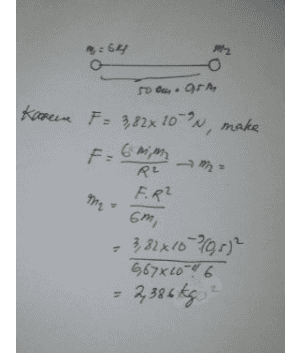 m₁ = 6 kg m₂
50 cm = 0,5 m
Karena F = 3,82 x 10⁻⁹ N, maka
F = G m₁m₂ / R² → m₂ =
m₂ = F.R² / G m₁
= 3,82 x 10⁻⁹ (0,5)² / 6,67 x 10⁻¹¹ 6
= 2,386 kg